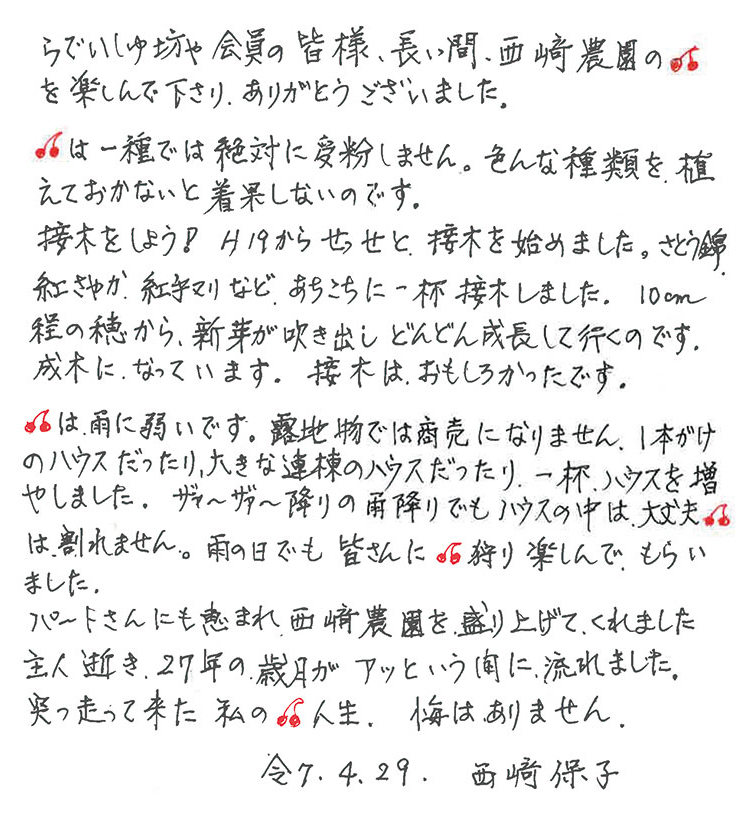 らでぃしゅ坊や会員の皆様、長い間、西﨑農園の🍒
を楽しんで下さり、ありがとうございました。
🍒は一種では絶対に受粉しません。色んな種類を、植
えておかないと着果しないのです。
接木をしよう! H19からせっせと、接木を始めました。さとう錦、
紅さやか、紅手マリなど、あちこちに一杯接木しました。10cm
程の穂から、新芽が吹き出しどんどん成長して行くのです。
成木に、なっています。接木は、おもしろかったです。
🍒は、雨に弱いです。露地物では商売になりません、1本がけ
のハウスだったり、大きな連棟のハウスだったり、一杯、ハウスを増
やしました。ザァ〜ザァ〜降りの雨降りでもハウスの中は、大丈夫🍒
は、割れません。雨の日でも皆さんに🍒狩り楽しんで、もらい
ました。
パートさんにも恵まれ、西﨑農園を、盛り上げて、くれました
主人逝き、27年の、歳月がアッという間に、流れました。
突っ走って来た私の🍒人生、悔は、ありません。
令7.4.29. 西﨑保子